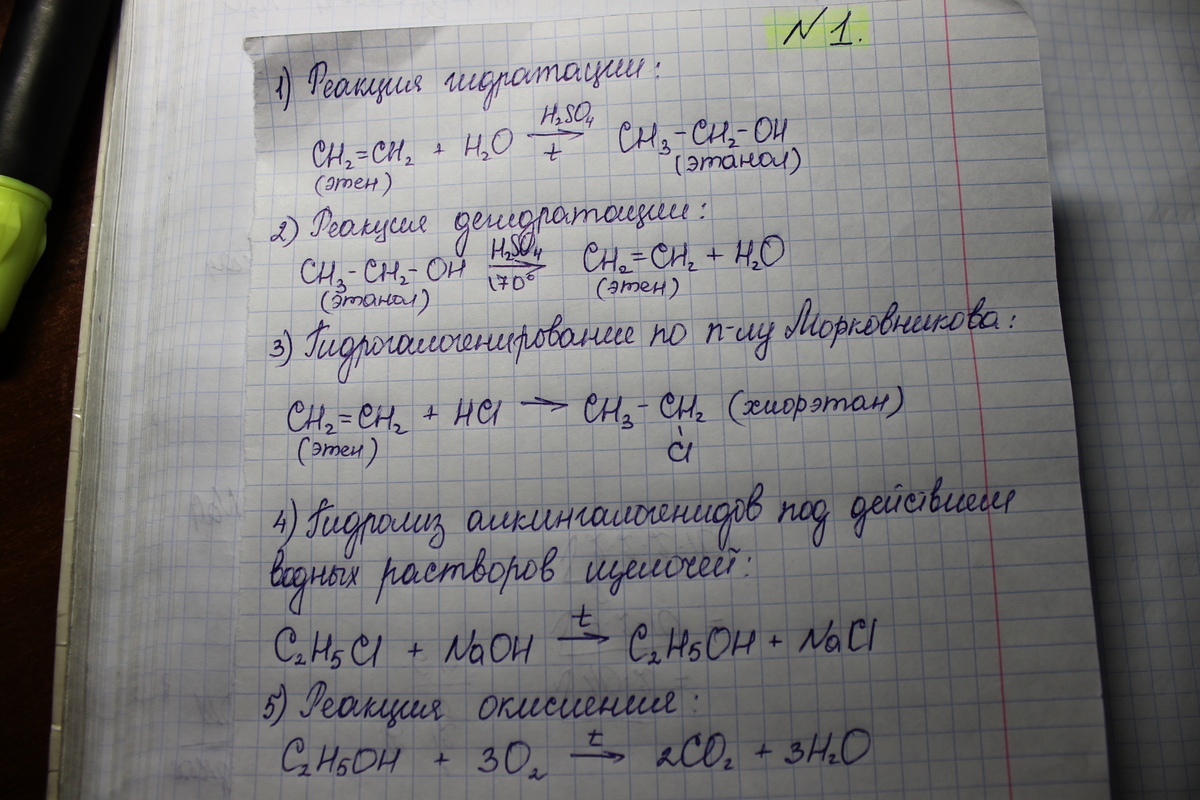 N 1.
1) Реакция гидратации:
CH₂=CH₂ + H₂O →(H₂SO₄, t) CH₃-CH₂-OH
(этен) (этанол)
2) Реакция дегидратации:
CH₃-CH₂-OH →(H₂SO₄, 170°) CH₂=CH₂ + H₂O
(этанол) (этен)
3) Гидрогалогенирование по п-лу Морковникова:
CH₂=CH₂ + HCl → CH₃-CH₂ (хлорэтан)
(этен) Cl
4) Гидролиз алкингалогенидов под действием
водных растворов щелочей:
C₂H₅Cl + NaOH →(t) C₂H₅OH + NaCl
5) Реакция окисления:
C₂H₅OH + 3O₂ →(t) 2CO₂ + 3H₂O